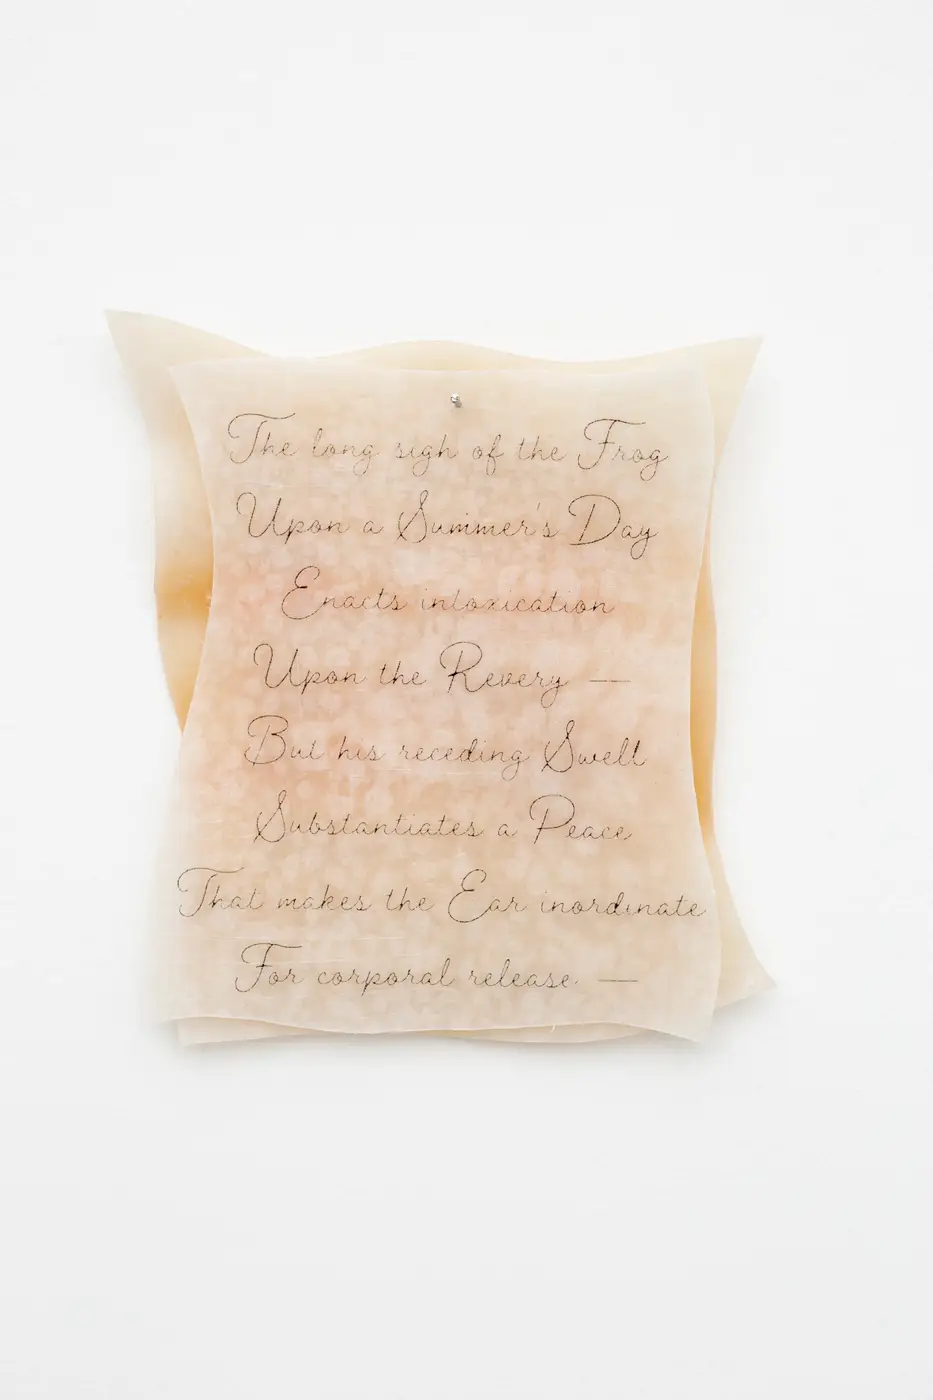 The long sigh of the Frog
Upon a Summer's Day
Enacts intoxication
Upon the Revery —
But his receding Swell
Substantiates a Peace
That makes the Ear inordinate
For corporal release —